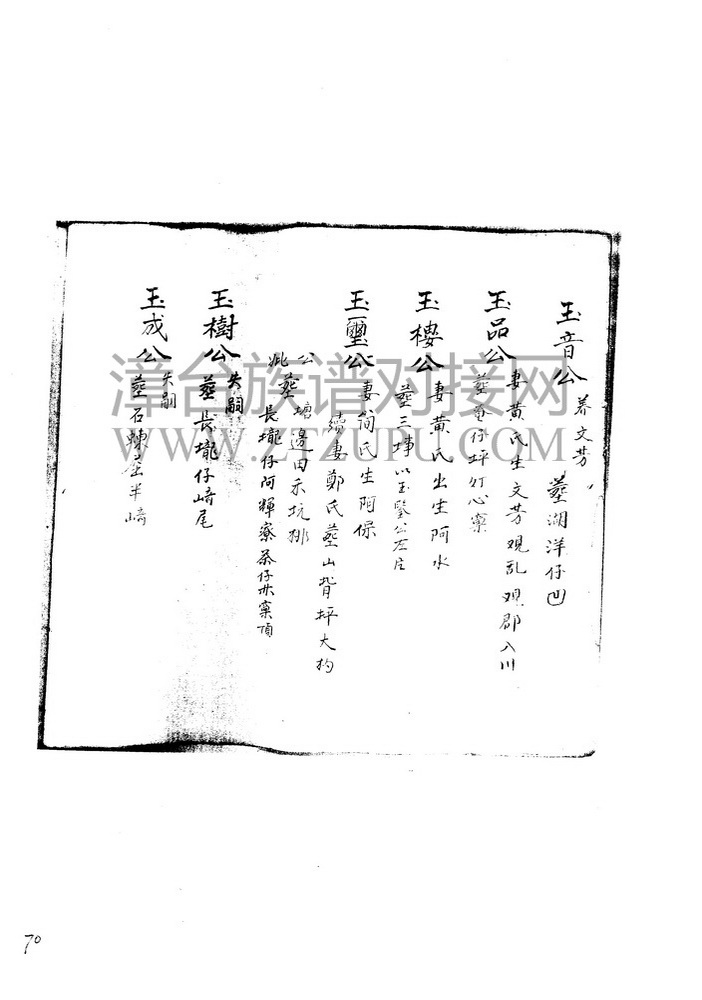 玉音公 养文芳
葬湖洋仔凹
玉品公 妻黄氏生文芳观乱观郡入川
葬黄仔坪竹心窠
玉楼公 妻黄氏出生阿水
葬三埲以玉璧公左片
玉璽公 妻简氏生阿保
续妻鄭氏葬山背坪大杓
公塘邊田示坑排
妣葬長壠仔阿輝寮茶仔岽窠頂
玉樹公 失嗣
葬長壠仔崎尾
玉成公 失嗣
葬石 半崎
漳台族谱对接网
WWW.ZTZUPU.COM
70